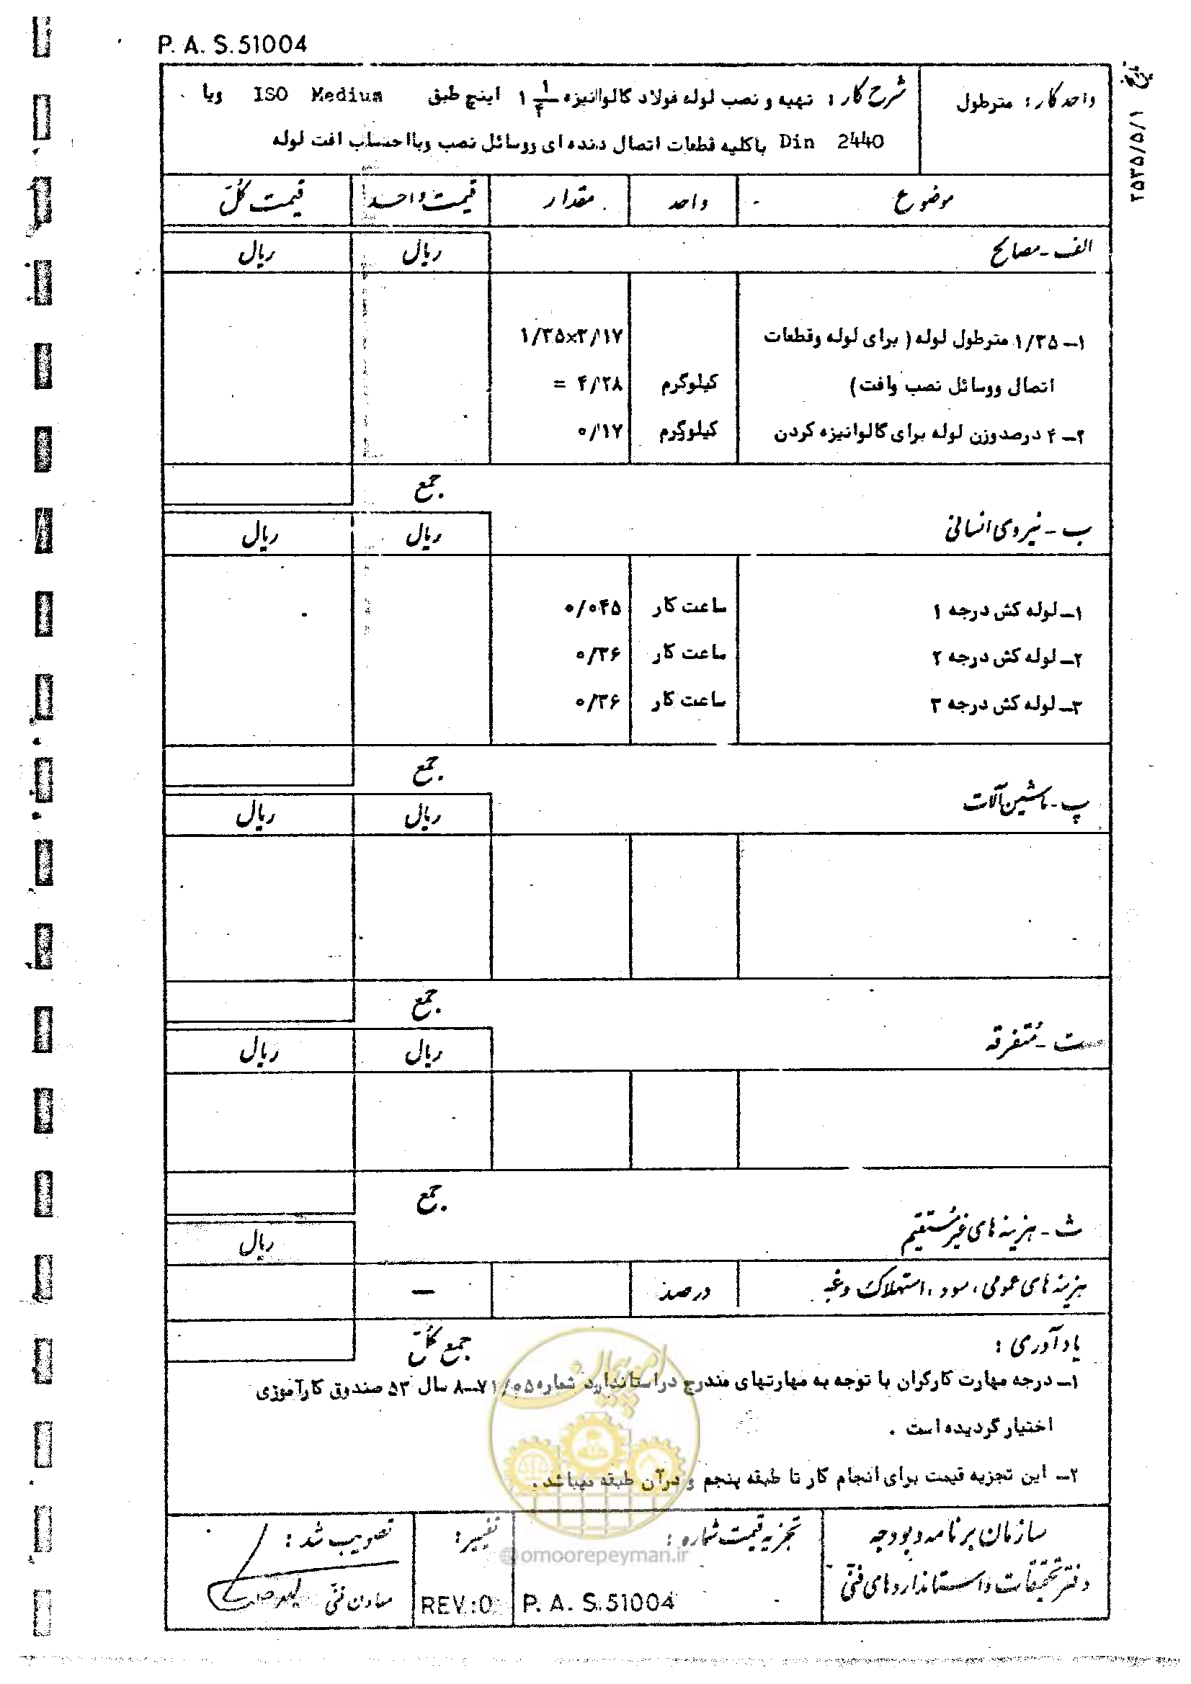 P. A. S. 51004
تاریخ ۲۵۳۵/۵/۱
واحد کار : مترطول
شرح کار : تهیه و نصب لوله فولاد گالوانیزه ۱ ۱/۴ اینچ طبق ISO Medium ویا
Din 2440 باکلیه قطعات اتصال دنده ای ووسائل نصب وبااحتساب افت لوله
موضوع واحد مقدار قیمت واحد قیمت کل
الف - مصالح ریال ریال
۱- ۱/۳۵ مترطول لوله ( برای لوله وقطعات ۱/۳۵×۳/۱۷
اتصال ووسائل نصب وافت ) کیلوگرم = ۴/۲۸
۲- ۴ درصدوزن لوله برای گالوانیزه کردن کیلوگرم ۰/۱۷
جمع
ب - نیروی انسانی ریال ریال
۱- لوله کش درجه ۱ ساعت کار ۰/۰۴۵
۲- لوله کش درجه ۲ ساعت کار ۰/۳۶
۳- لوله کش درجه ۳ ساعت کار ۰/۳۶
جمع
پ - ماشین آلات ریال ریال
جمع
ت - متفرقه ریال ریال
جمع
ث - هزینه های غیرمستقیم ریال
هزینه های عمومی ، سود ، استهلاک وغیره درصد —
یادآوری : جمع کل
۱- درجه مهارت کارگران با توجه به مهارتهای مندرج دراستاندارد شماره ۸-۷۱/۰۵ سال ۵۳ صندوق کارآموزی
اختیار گردیده است .
۲- این تجزیه قیمت برای انجام کار تا طبقه پنجم و درآن طبقه میباشد .
امور پیمان
@omoorepeyman.ir
سازمان برنامه وبودجه تجزیه قیمت شماره : تغییر : تصویب شد :
دفتر تحقیقات واستانداردهای فنی P. A. S. 51004 REV.:0 معاون فنی